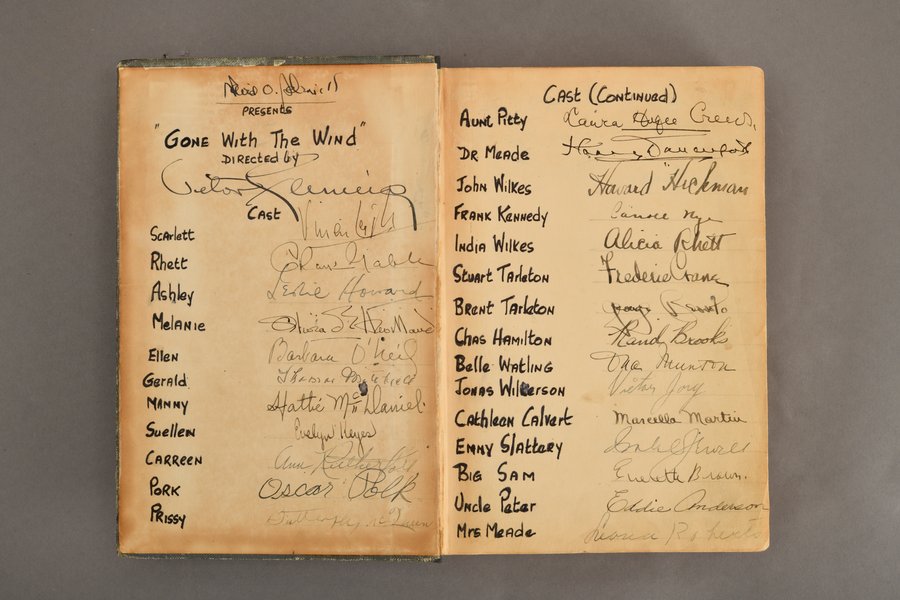 David O. Selznick
PRESENTS
"GONE WITH THE WIND"
DIRECTED by
Victor Fleming
CAST
Scarlett Vivien Leigh
Rhett Clark Gable
Ashley Leslie Howard
Melanie Olivia de Havilland
Ellen Barbara O'Neil
Gerald Thomas Mitchell
MAMMY Hattie McDaniel.
Suellen Evelyn Keyes
CARREEN Ann Rutherford
PORK Oscar Polk
PRISSY Butterfly McQueen
CAST (CONTINUED)
AUNT PITTY Laura Hope Crews.
DR MEADE Harry Davenport
JOHN WILKES Howard Hickman
FRANK KENNEDY Carroll Nye
INDIA WILKES Alicia Rhett
STUART TARLETON Frederic Crane
BRENT TARLETON
CHAS HAMILTON Rand Brooks
BELLE WATLING Ona Munson
JONAS WILKERSON Victor Jory
CATHLEEN CALVERT Marcella Martin
EMMY SLATTERY Isabel Jewell
BIG SAM Everett Brown.
UNCLE PETER Eddie Anderson
MRS MEADE Leona Roberts